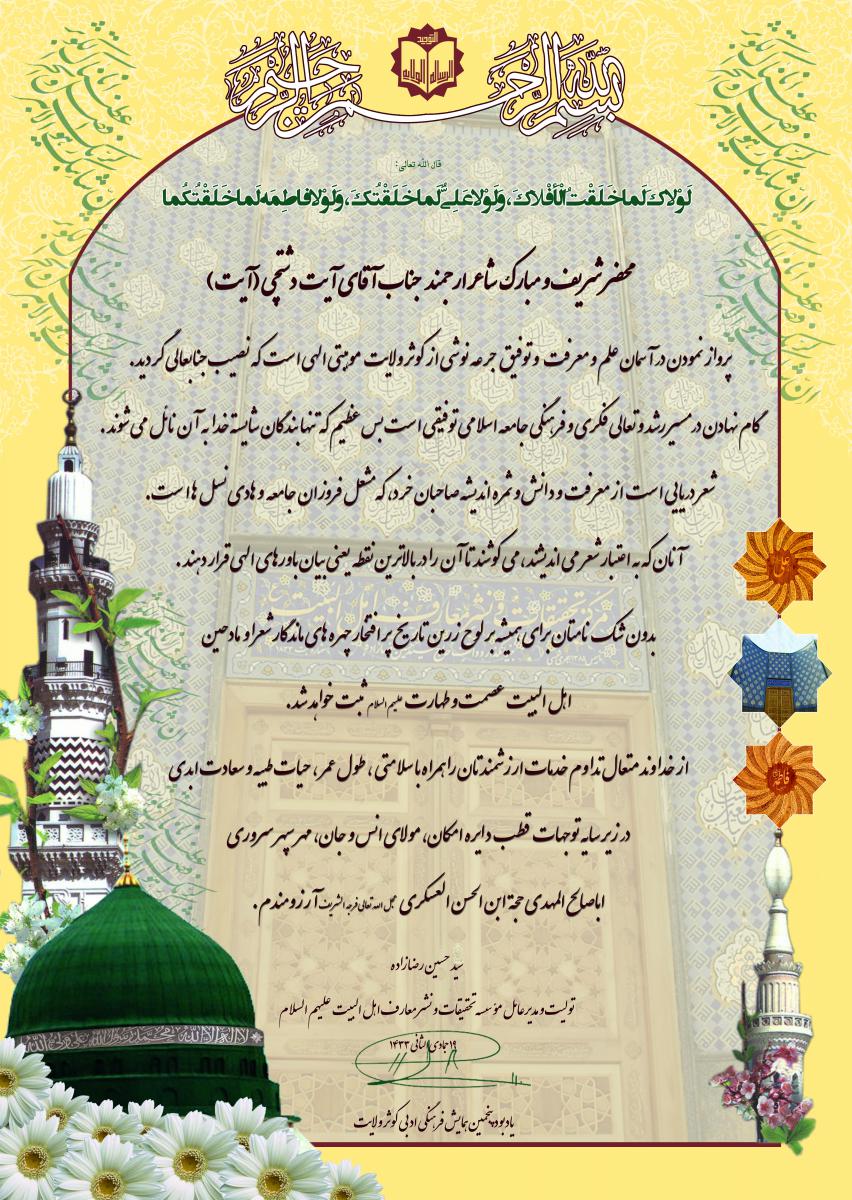 بسم الله الرحمن الرحیم
التوحید
الرسالة الولایة
قال الله تعالی:
لَوْلاكَ لَما خَلَقْتُ الْأَفْلاكَ، وَلَوْلا عَلِيٌّ لَما خَلَقْتُكَ، وَلَوْلا فاطِمَه لَما خَلَقْتُكُما
محضر شریف و مبارک شاعر ارجمند جناب آقای آیت دشتچی (آیت)
پرواز نمودن در آسمان علم و معرفت و توفیق جرعه نوشی از کوثر ولایت موهبتی الهی است که نصیب جنابعالی گردید.
گام نهادن در مسیر رشد و تعالی فکری و فرهنگی جامعه اسلامی توفیقی است بس عظیم که تنها بندگان شایسته خدا به آن نائل می شوند.
شعر دریایی است از معرفت و دانش و ثمره اندیشه صاحبان خرد، که مشعل فروزان جامعه و هادی نسل ها است.
آنان که به اعتبار شعر می اندیشند، می کوشند تا آن را در بالاترین نقطه یعنی بیان باورهای الهی قرار دهند.
بدون شک نامتان برای همیشه بر لوح زرین تاریخ پر افتخار چهره های ماندگار شعرا و مادحین
اهل البیت عصمت و طهارت علیهم السلام ثبت خواهد شد.
از خداوند متعال تداوم خدمات ارزشمندتان را همراه با سلامتی، طول عمر، حیات طیبه و سعادت ابدی
در زیر سایه توجهات قطب دایره امکان، مولای انس و جان، مهر سپهر سروری
اباصالح المهدی حجة ابن الحسن العسکری عجل الله تعالی فرجه الشریف آرزومندم.
سید حسین رضازاده
تولیت و مدیر عامل مؤسسه تحقیقات و نشر معارف اهل البیت علیهم السلام
۱۹ جمادی الثانی ۱۴۳۳
یادبود پنجمین همایش فرهنگی ادبی کوثر ولایت
علی
فاطمة